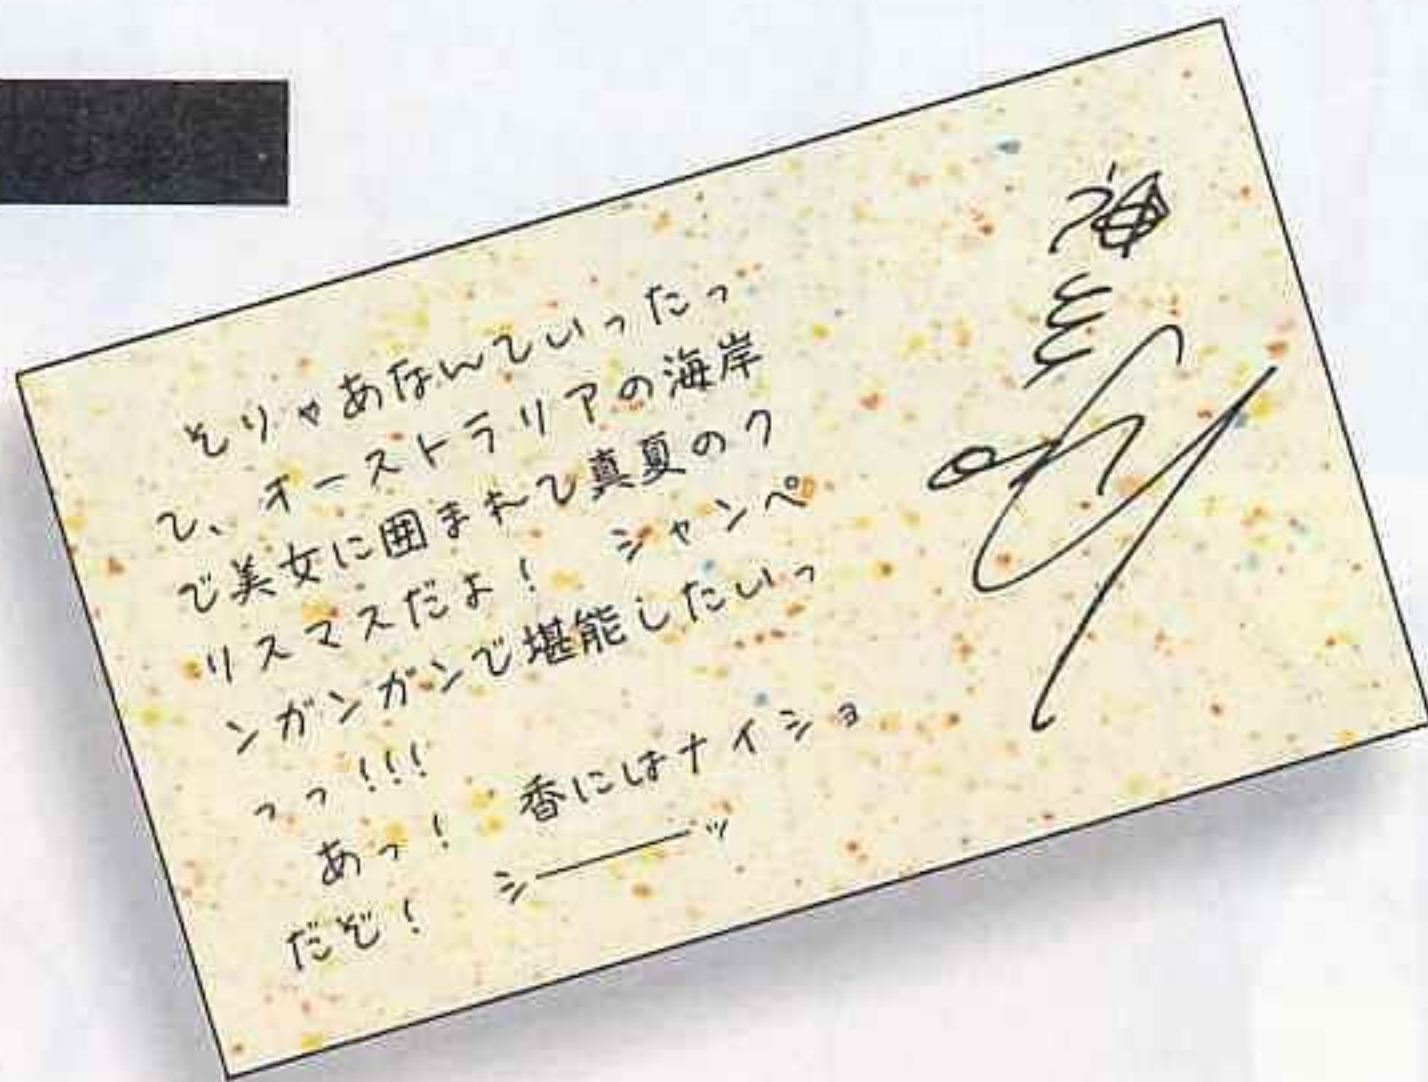 そりゃあなんていったっ
て、オーストラリアの海岸
で美女に囲まれて真夏のク
リスマスだよ！　シャンペ
ンガンガンで堪能したいっ
っっ!!!
あっ！　香にはナイショ
だぞ！　シ———ッ